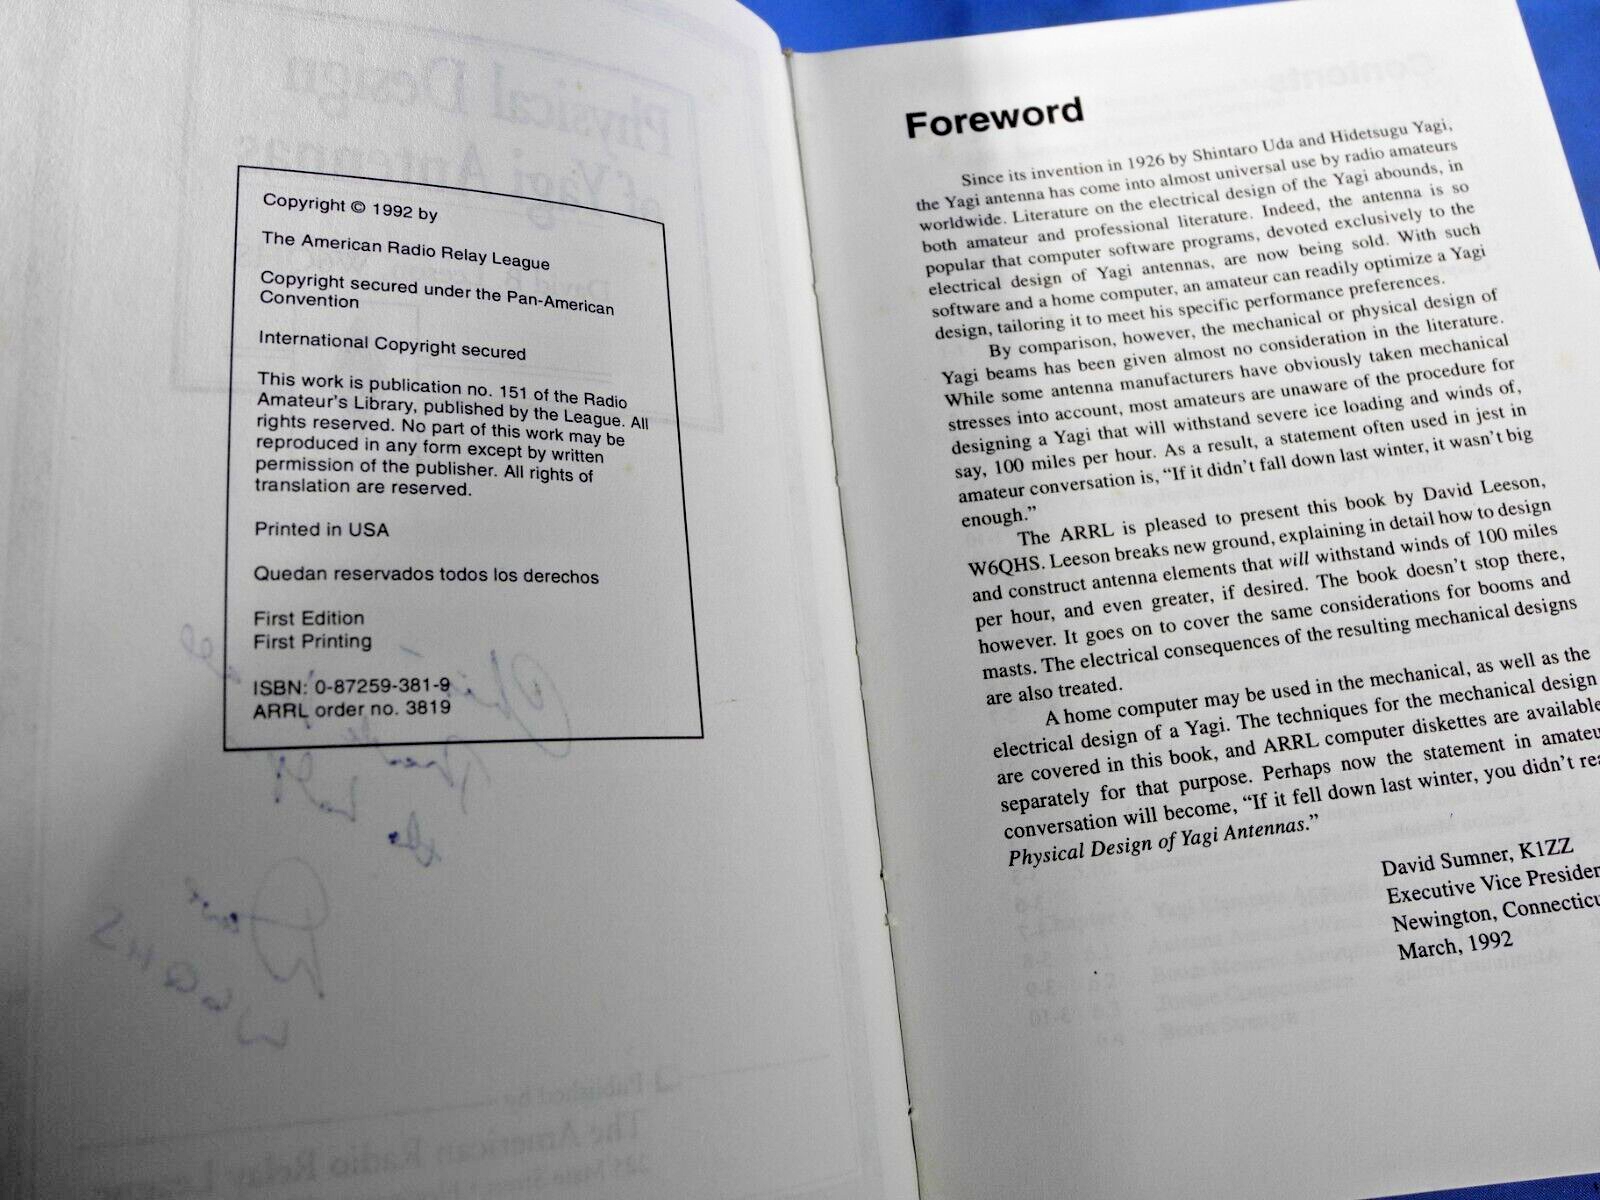 Copyright © 1992 by
The American Radio Relay League
Copyright secured under the Pan-American
Convention
International Copyright secured
This work is publication no. 151 of the Radio
Amateur's Library, published by the League. All
rights reserved. No part of this work may be
reproduced in any form except by written
permission of the publisher. All rights of
translation are reserved.
Printed in USA
Quedan reservados todos los derechos
First Edition
First Printing
ISBN: 0-87259-381-9
ARRL order no. 3819
Foreword
Since its invention in 1926 by Shintaro Uda and Hidetsugu Yagi,
the Yagi antenna has come into almost universal use by radio amateurs
worldwide. Literature on the electrical design of the Yagi abounds, in
both amateur and professional literature. Indeed, the antenna is so
popular that computer software programs, devoted exclusively to the
electrical design of Yagi antennas, are now being sold. With such
software and a home computer, an amateur can readily optimize a Yagi
design, tailoring it to meet his specific performance preferences.
By comparison, however, the mechanical or physical design of
Yagi beams has been given almost no consideration in the literature.
While some antenna manufacturers have obviously taken mechanical
stresses into account, most amateurs are unaware of the procedure for
designing a Yagi that will withstand severe ice loading and winds of,
say, 100 miles per hour. As a result, a statement often used in jest in
amateur conversation is, “If it didn’t fall down last winter, it wasn’t big
enough.”
The ARRL is pleased to present this book by David Leeson,
W6QHS. Leeson breaks new ground, explaining in detail how to design
and construct antenna elements that will withstand winds of 100 miles
per hour, and even greater, if desired. The book doesn’t stop there,
however. It goes on to cover the same considerations for booms and
masts. The electrical consequences of the resulting mechanical designs
are also treated.
A home computer may be used in the mechanical, as well as the
electrical design of a Yagi. The techniques for the mechanical design
are covered in this book, and ARRL computer diskettes are available
separately for that purpose. Perhaps now the statement in amateu
conversation will become, “If it fell down last winter, you didn’t rea
Physical Design of Yagi Antennas.”
David Sumner, K1ZZ
Executive Vice Presiden
Newington, Connecticu
March, 1992
Physical Design
of Yagi Antennas
Dave
W6QHS
Published by
The American Radio Relay League